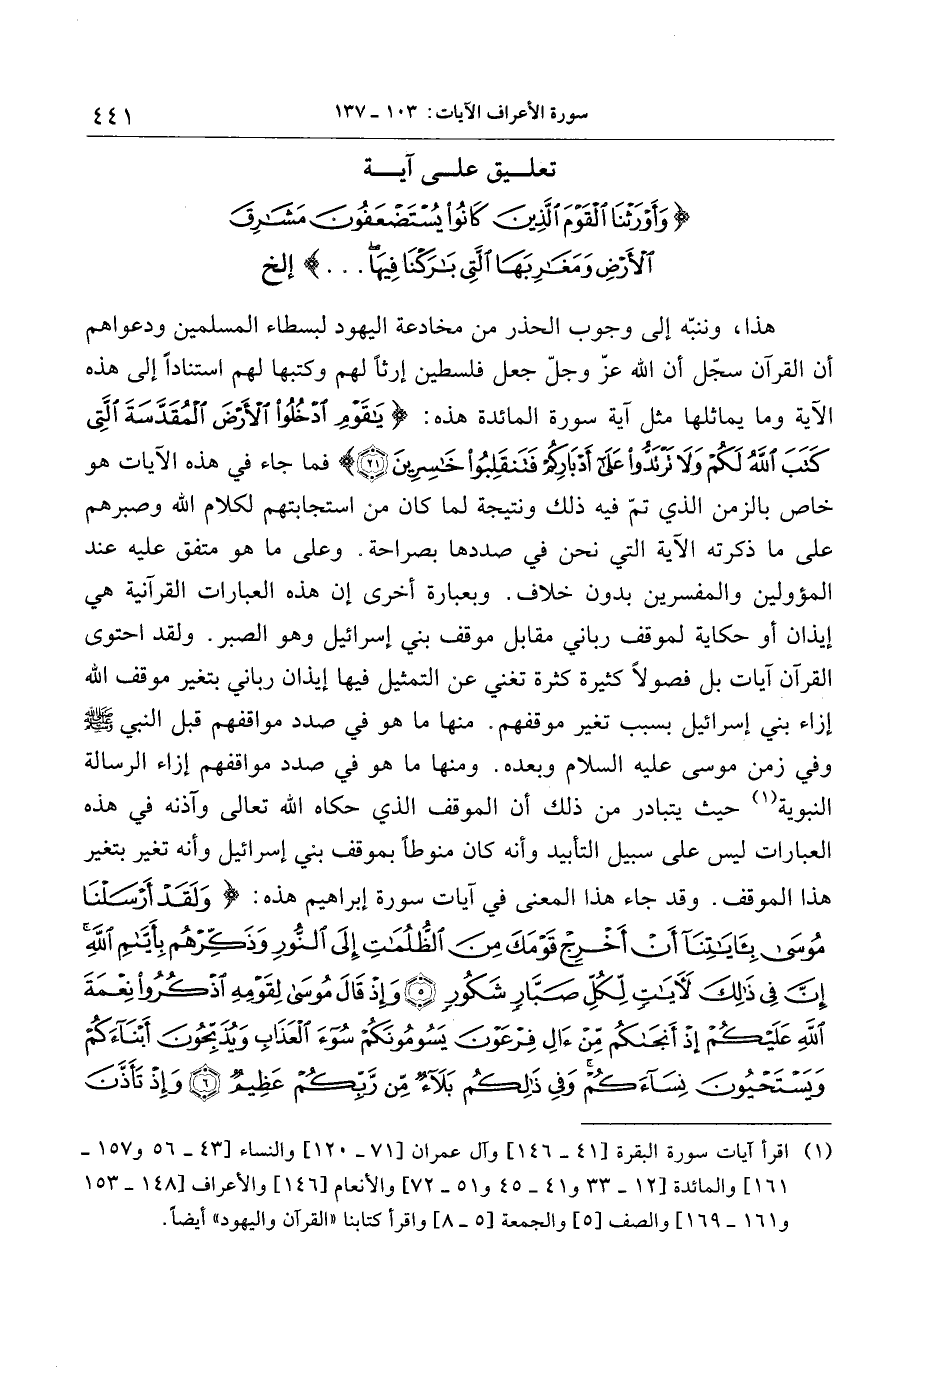 سورة الأعراف الآيات: ١٠٣ ـ ١٣٧ ٤٤١
تعلـــيق علـــى آيـــة
﴿ وَأَوْرَثْنَا ٱلْقَوْمَ ٱلَّذِينَ كَانُوا۟ يُسْتَضْعَفُونَ مَشَـٰرِقَ
ٱلْأَرْضِ وَمَغَـٰرِبَهَا ٱلَّتِى بَـٰرَكْنَا فِيهَا ۖ . . . ﴾ إلخ
هذا، وننبّه إلى وجوب الحذر من مخادعة اليهود لبسطاء المسلمين ودعواهم
أن القرآن سجّل أن الله عزّ وجلّ جعل فلسطين إرثاً لهم وكتبها لهم استناداً إلى هذه
الآية وما يماثلها مثل آية سورة المائدة هذه: ﴿ يَـٰقَوْمِ ٱدْخُلُوا۟ ٱلْأَرْضَ ٱلْمُقَدَّسَةَ ٱلَّتِى
كَتَبَ ٱللَّهُ لَكُمْ وَلَا تَرْتَدُّوا۟ عَلَىٰٓ أَدْبَارِكُمْ فَتَنقَلِبُوا۟ خَـٰسِرِينَ ﴿٢١﴾ ﴾ فما جاء في هذه الآيات هو
خاص بالزمن الذي تمّ فيه ذلك ونتيجة لما كان من استجابتهم لكلام الله وصبرهم
على ما ذكرته الآية التي نحن في صددها بصراحة. وعلى ما هو متفق عليه عند
المؤولين والمفسرين بدون خلاف. وبعبارة أخرى إن هذه العبارات القرآنية هي
إيذان أو حكاية لموقف رباني مقابل موقف بني إسرائيل وهو الصبر. ولقد احتوى
القرآن آيات بل فصولاً كثيرة كثرة تغني عن التمثيل فيها إيذان رباني بتغير موقف الله
إزاء بني إسرائيل بسبب تغير موقفهم. منها ما هو في صدد مواقفهم قبل النبي ﷺ
وفي زمن موسى عليه السلام وبعده. ومنها ما هو في صدد مواقفهم إزاء الرسالة
النبوية(١) حيث يتبادر من ذلك أن الموقف الذي حكاه الله تعالى وآذنه في هذه
العبارات ليس على سبيل التأبيد وأنه كان منوطاً بموقف بني إسرائيل وأنه تغير بتغير
هذا الموقف. وقد جاء هذا المعنى في آيات سورة إبراهيم هذه: ﴿ وَلَقَدْ أَرْسَلْنَا
مُوسَىٰ بِـَٔايَـٰتِنَآ أَنْ أَخْرِجْ قَوْمَكَ مِنَ ٱلظُّلُمَـٰتِ إِلَى ٱلنُّورِ وَذَكِّرْهُم بِأَيَّىٰمِ ٱللَّهِ ۚ
إِنَّ فِى ذَٰلِكَ لَـَٔايَـٰتٍ لِّكُلِّ صَبَّارٍ شَكُورٍ ﴿٥﴾ وَإِذْ قَالَ مُوسَىٰ لِقَوْمِهِ ٱذْكُرُوا۟ نِعْمَةَ
ٱللَّهِ عَلَيْكُمْ إِذْ أَنجَىٰكُم مِّنْ ءَالِ فِرْعَوْنَ يَسُومُونَكُمْ سُوٓءَ ٱلْعَذَابِ وَيُذَبِّحُونَ أَبْنَآءَكُمْ
وَيَسْتَحْيُونَ نِسَآءَكُمْ ۚ وَفِى ذَٰلِكُم بَلَآءٌ مِّن رَّبِّكُمْ عَظِيمٌ ﴿٦﴾ وَإِذْ تَأَذَّنَ
(١) اقرأ آيات سورة البقرة [٤١ ـ ١٤٦] وآل عمران [٧١ ـ ١٢٠] والنساء [٤٣ ـ ٥٦ و١٥٧ ـ
١٦١] والمائدة [١٢ ـ ٣٣ و٤١ ـ ٤٥ و٥١ ـ ٧٢] والأنعام [١٤٦] والأعراف [١٤٨ ـ ١٥٣
و١٦١ ـ ١٦٩] والصف [٥] والجمعة [٥ ـ ٨] واقرأ كتابنا «القرآن واليهود» أيضاً.